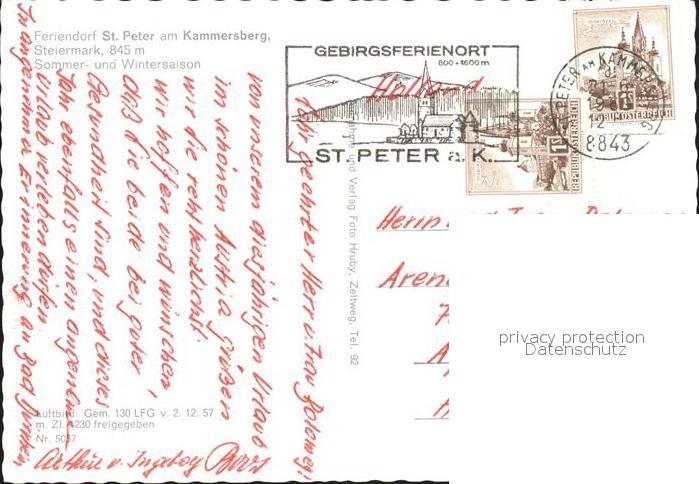 Feriendorf St. Peter am Kammersberg,
Steiermark, 845 m
Sommer- und Wintersaison
GEBIRGSFERIENORT
800-1600 m
ST. PETER a. K.
Holland
ST. PETER AM KAMMERSBERG
8843
REPUBLIK ÖSTERREICH
REPUBLIK ÖSTERREICH
und Verlag Foto Hruby, Zeltweg, Tel. 92
Herrn
Sehr geehrter Herr u. Frau
von unserem diesjährigen Urlaub
im schönen Austria grüßen
wir die recht herzlichst.
Wir hoffen und wünschen,
daß die beide bei guter
Gesundheit sind, und dieses
Jahr ebenfalls einen angenehmen
Urlaub verleben dürfen.
In angenehmer Erinnerung a. Bad
u. Ingeborg
Luftbild: Gem. 130 LFG v. 2. 12. 57
m. Zl. 4230 freigegeben
Nr. 5037
privacy protection
Datenschutz